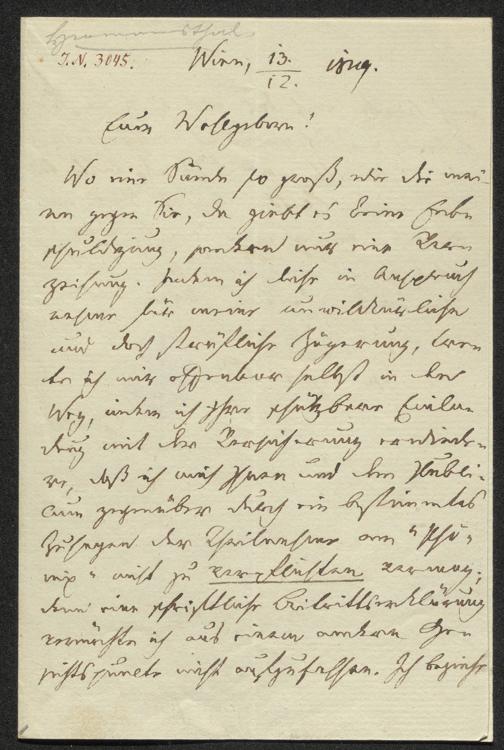 Hermannsthal
I.N. 3045.
Wien, 13./12. 1849.
Euer Wohlgeborn!
Wo eine Sünde so groß, wie die mei-
ne gegen Sie, da giebt es keine Ent-
schuldigung, sondern nur eine Ver-
zeihung. Indem ich diese in Anspruch
nehme für meine unwillkürliche
und doch sträfliche Zögerung, tre-
te ich mir offenbar selbst in den
Weg, indem ich Ihre schätzbare Einla-
dung mit der Versicherung erwiede-
re, daß ich mich Ihnen und dem Publi-
cum gegenüber durch ein bestimmtes
Zusagen der Theilnahme am "Phö-
nix" nicht zu verpflichten vermag;
denn eine schriftliche Beitrittserklärung
vermöchte ich aus einem andern Ge-
sichtspuncte nicht aufzufassen. Ich